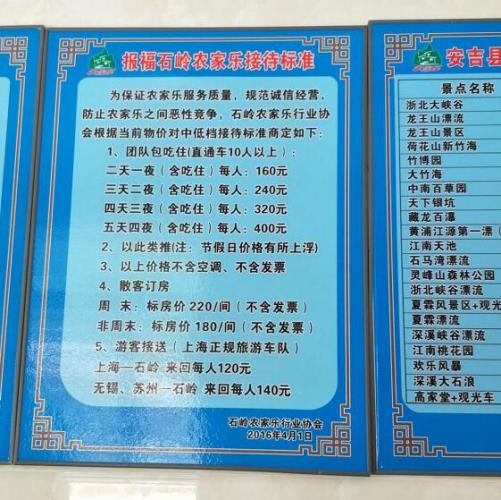 报福石岭农家乐接待标准
为保证农家乐服务质量，规范诚信经营，
防止农家乐之间恶性竞争，石岭农家乐行业协
会根据当前物价对中低档接待标准商定如下：
1、团队包吃住(直通车10人以上)：
二天一夜（含吃住）每人：160元
三天二夜（含吃住）每人：240元
四天三夜（含吃住）每人：320元
五天四夜（含吃住）每人：400元
2、以此类推(注：节假日价格有所上浮)
3、以上价格不含空调、不含发票
4、散客订房
周 末：标房价220/间（不含发票）
非周末：标房价180/间（不含发票）
5、游客接送（上海正规旅游车队）
上海—石岭 来回每人120元
无锡、苏州—石岭 来回每人140元
石岭农家乐行业协会
2016年4月1日
安吉县
景点名称
浙北大峡谷
龙王山漂流
龙王山景区
荷花山新竹海
竹博园
大竹海
中南百草园
天下银坑
藏龙百瀑
黄浦江源第一漂
江南天池
石马湾漂流
灵峰山森林公园
浙北峡谷漂流
夏霖风景区+观光
夏霖漂流
深溪峡谷漂流
江南桃花园
欢乐风暴
深溪大石浪
高家堂+观光车